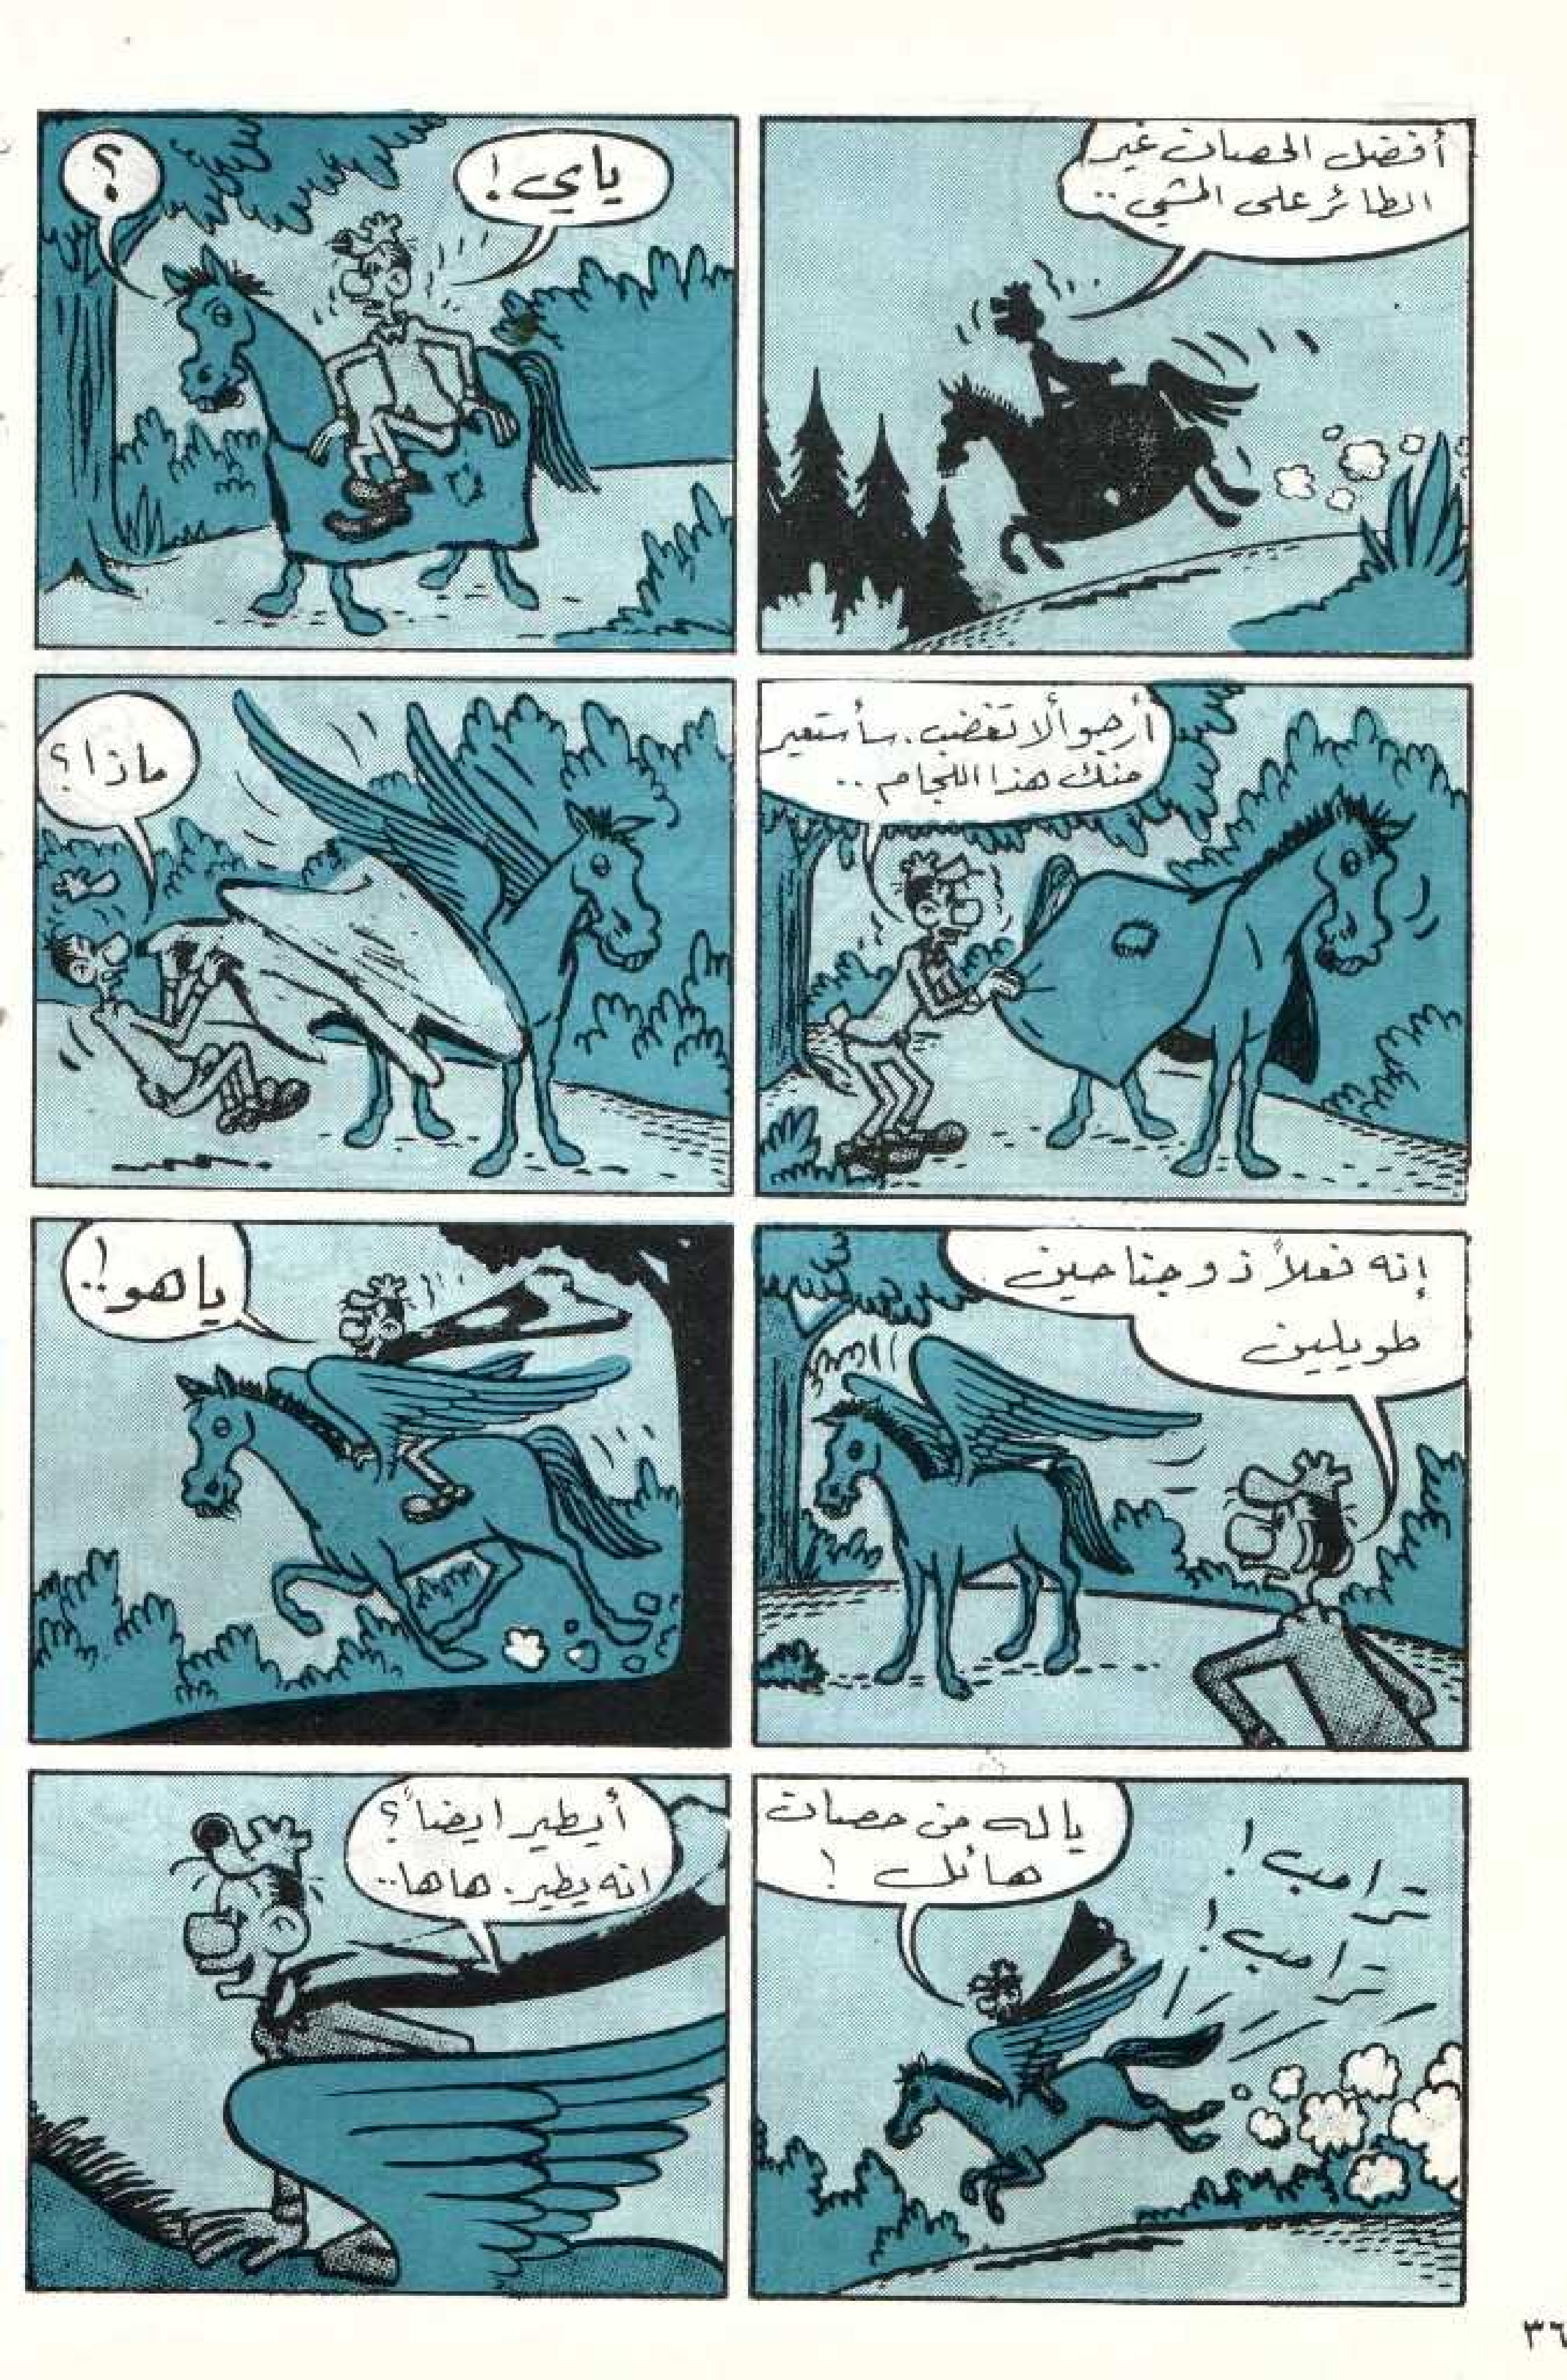 أفضل الحصان غير
الطائر على المشي..
ياي!
؟
أرجو ألا تغضب. سأستعير
منك هذا اللجام..
ماذا؟
إنه فعلاً ذو جناحين
طويلين
ياهو!..
تراحب!
تراحب!
ياله من حصان
هائل!
أيطير ايضاً؟
انه يطير. هاها..
٣٦